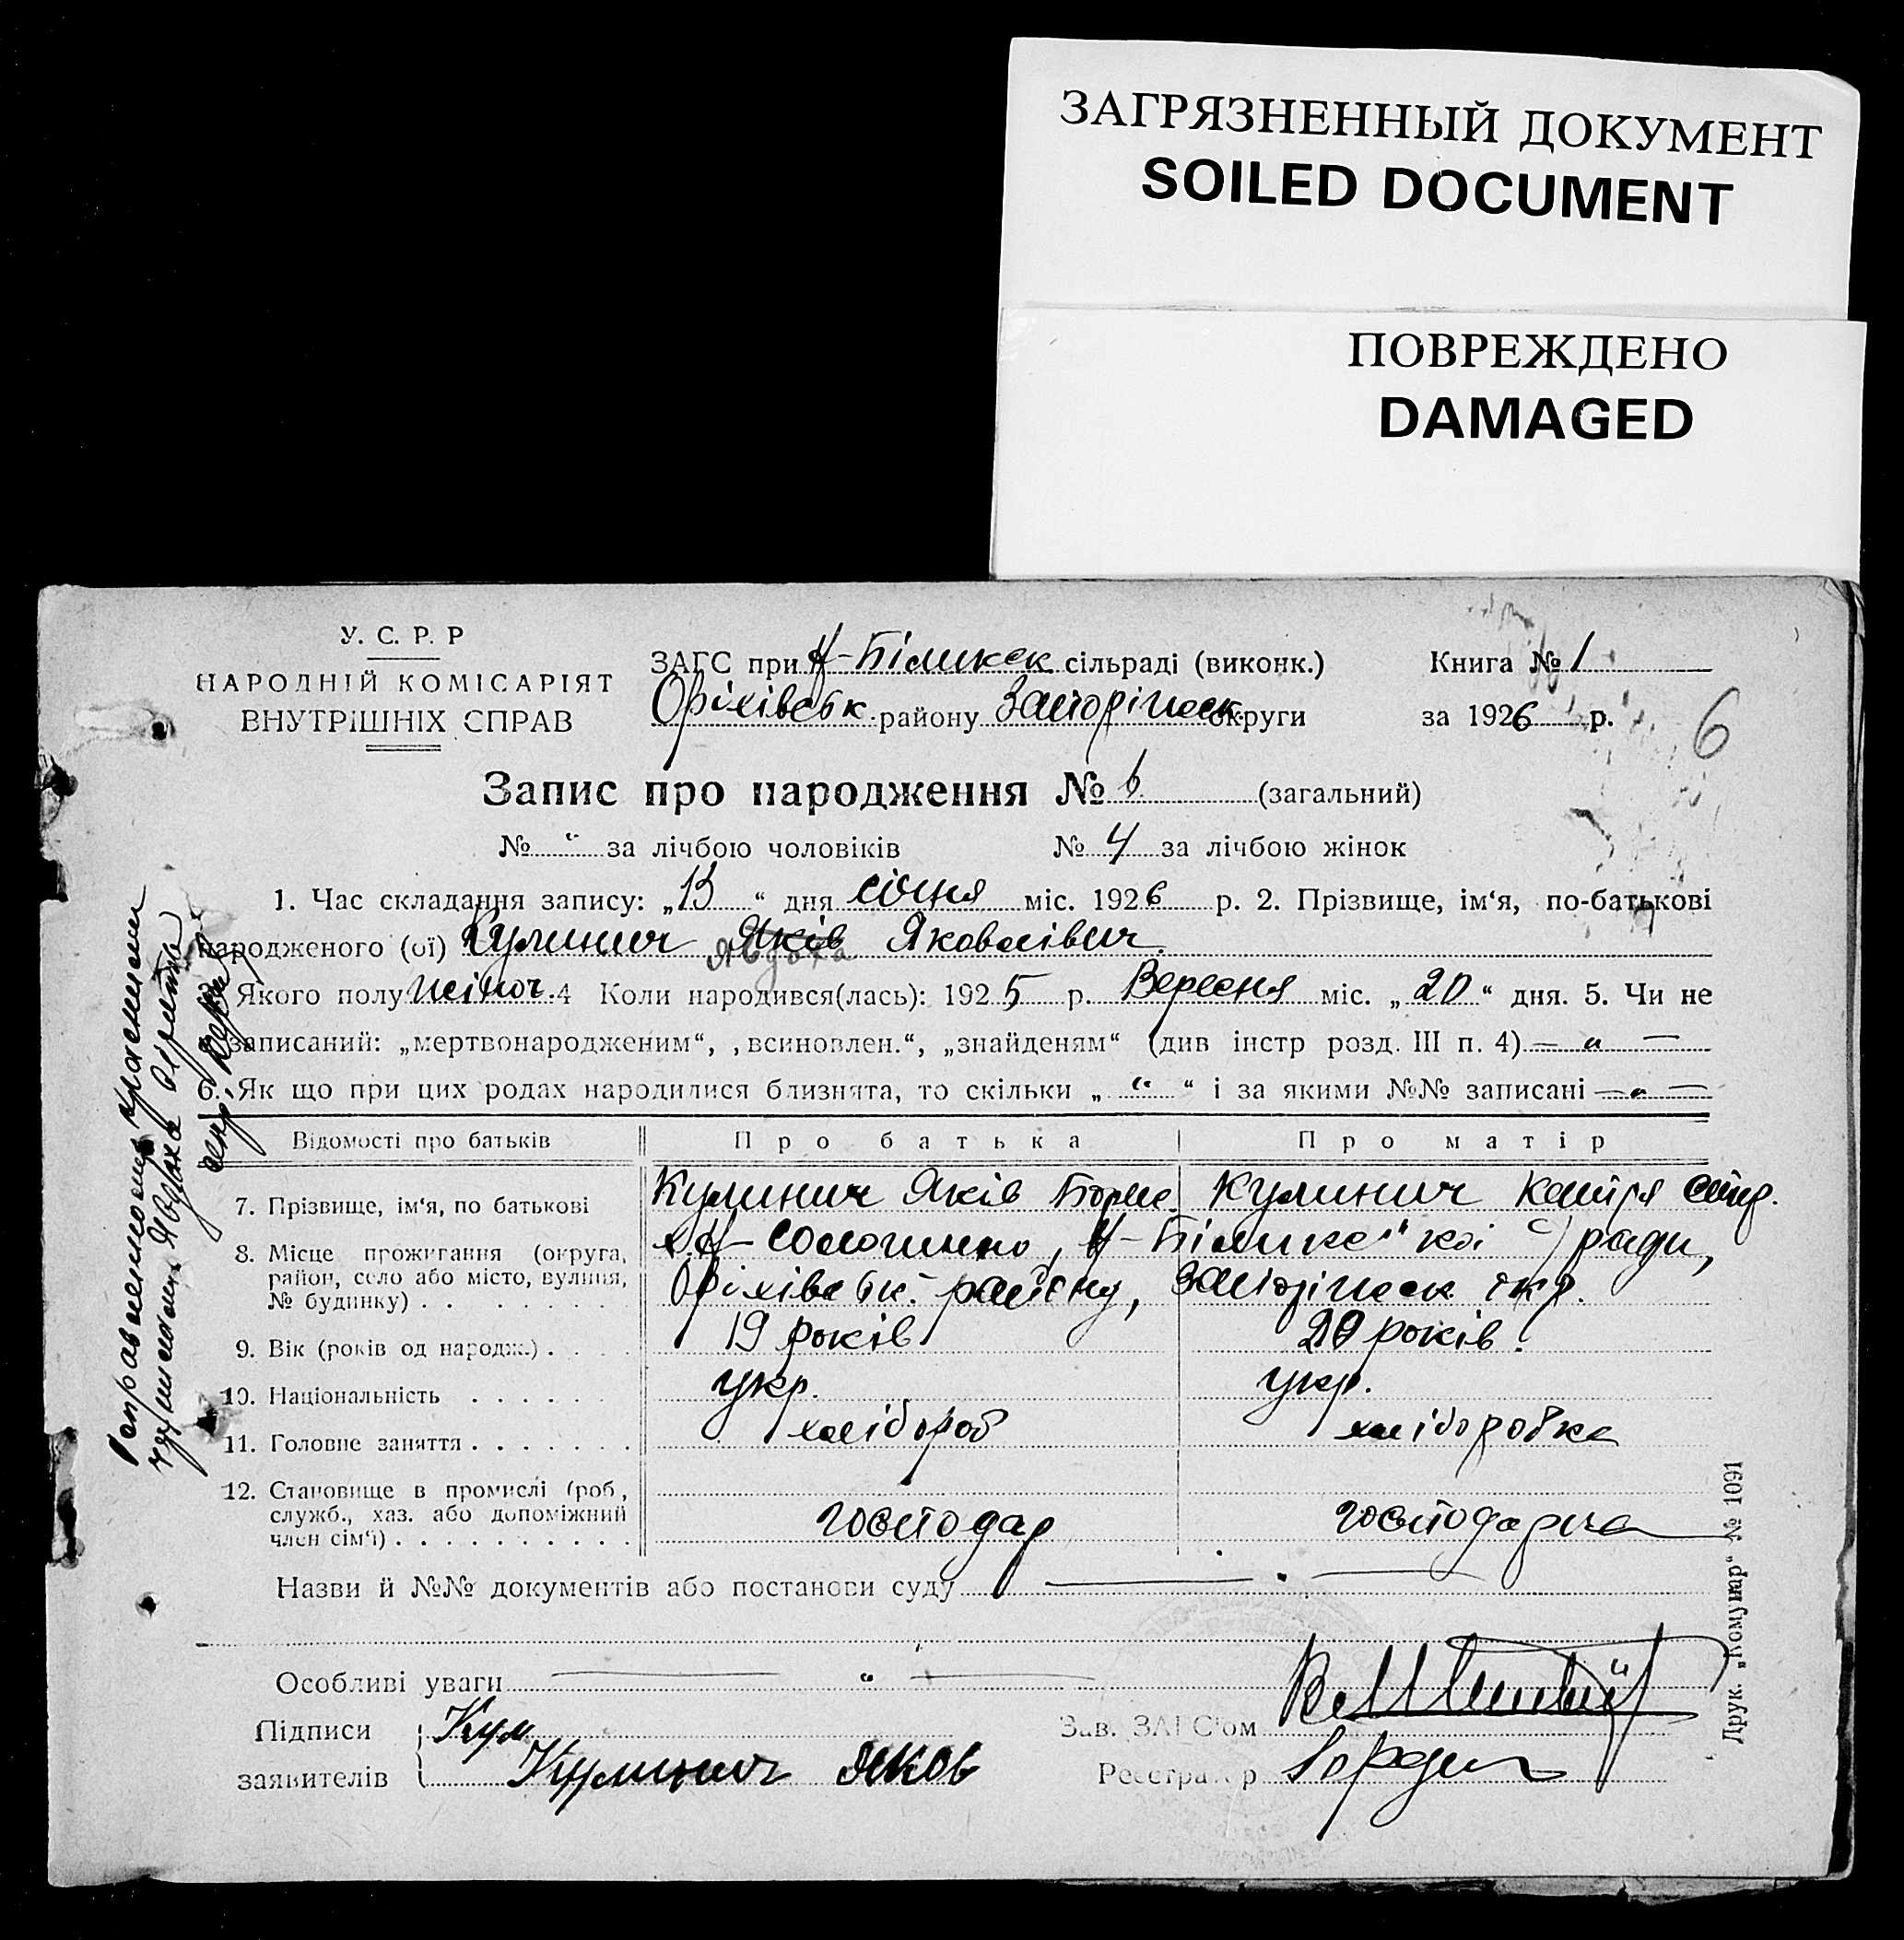 ЗАГРЯЗНЕННЫЙ ДОКУМЕНТ
SOILED DOCUMENT
ПОВРЕЖДЕНО
DAMAGED
У. С. Р. Р
НАРОДНІЙ КОМІСАРІЯТ
ВНУТРІШНІХ СПРАВ
ЗАГС при Н-Біликск сільраді (виконк.) Книга № 1
Оріхівськ. району Запоріжск. округи за 1926 р. 6
Запис про народження № 6 (загальний)
№ " за лічбою чоловіків № 4 за лічбою жінок
1. Час складання запису: „13 “ дня січня міс. 1926 р. 2. Прізвище, ім‘я, по-батькові
народженого (ої) Кулинич Яків Яковлівич
Явдоха
Якого полу жіноч. 4 Коли народився(лась): 1925 р. Вересня міс. „ 20 “ дня. 5. Чи не
записаний: „мертвонародженим“, „всиновлен.“, „знайденям“ (див інстр розд. III п. 4) — " —
6. Як що при цих родах народилися близнята, то скільки „ " “ і за якими №№ записані — " —
Відомості про батьків Про батька Про матір
7. Прізвище, ім‘я, по батькові Кулинич Яків Борис. Кулинич Катря
8. Місце проживання (округа, район, село або місто, вулиця, № будинку) . . . . . . .
Н- Солошино, Н-Біликс"кої с/ ради,
Оріхівськ. району, Запоріжск окр.
9. Вік (років од народж.) . . . . 19 років 20 років.
10. Національність . . . . . укр. укр.
11. Головне заняття . . . . . . . хлібороб хліборобка
12. Становище в промислі (роб., служб., хаз. або допоміжний член сім‘ї) . . . . . . . . . . господар господарка
Назви й №№ документів або постанови суду
Особливі уваги "
Підписи Кул Зав. ЗАГС‘ом
заявителів Кулинич Яков Реєстратор
Друк. „Комунар“ № 1091